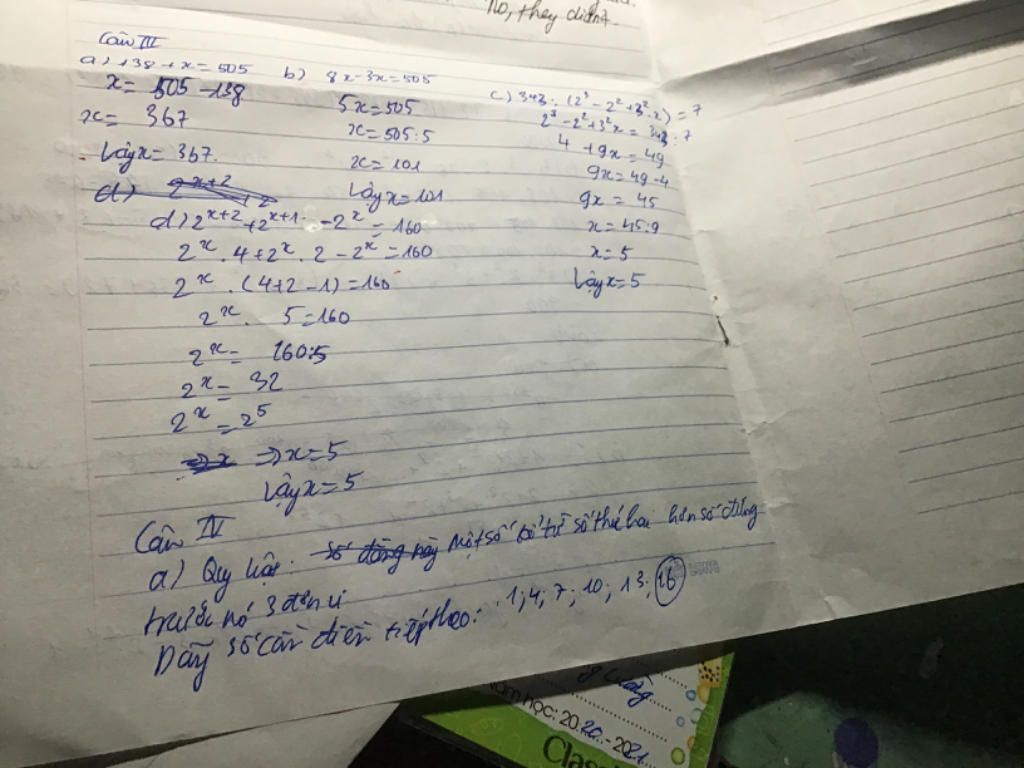 No, they didn't.
Câu III
a) 138 + x = 505
x = 505 - 138
x = 367
Vậy x = 367.
b) 8x - 3x = 505
5x = 505
x = 505:5
x = 101
Vậy x = 101
c) 343 : (2³ - 2² + 3².x) = 7
2³ - 2² + 3²x = 343 : 7
4 + 9x = 49
9x = 49 - 4
9x = 45
x = 45:9
x = 5
Vậy x = 5
d)
d) 2ˣ⁺² + 2ˣ⁺¹ - 2ˣ = 160
2ˣ . 4 + 2ˣ . 2 - 2ˣ = 160
2ˣ . (4+2-1) = 160
2ˣ . 5 = 160
2ˣ = 160:5
2ˣ = 32
2ˣ = 2⁵
=> x = 5
Vậy x = 5
Câu IV
a) Quy luật: Một số kể từ số thứ hai hơn số đứng
trước nó 3 đơn vị
Dãy số cần điền tiếp theo: 1; 4; 7; 10; 13; 16
g Lường
Năm học: 2020 - 2021
Class